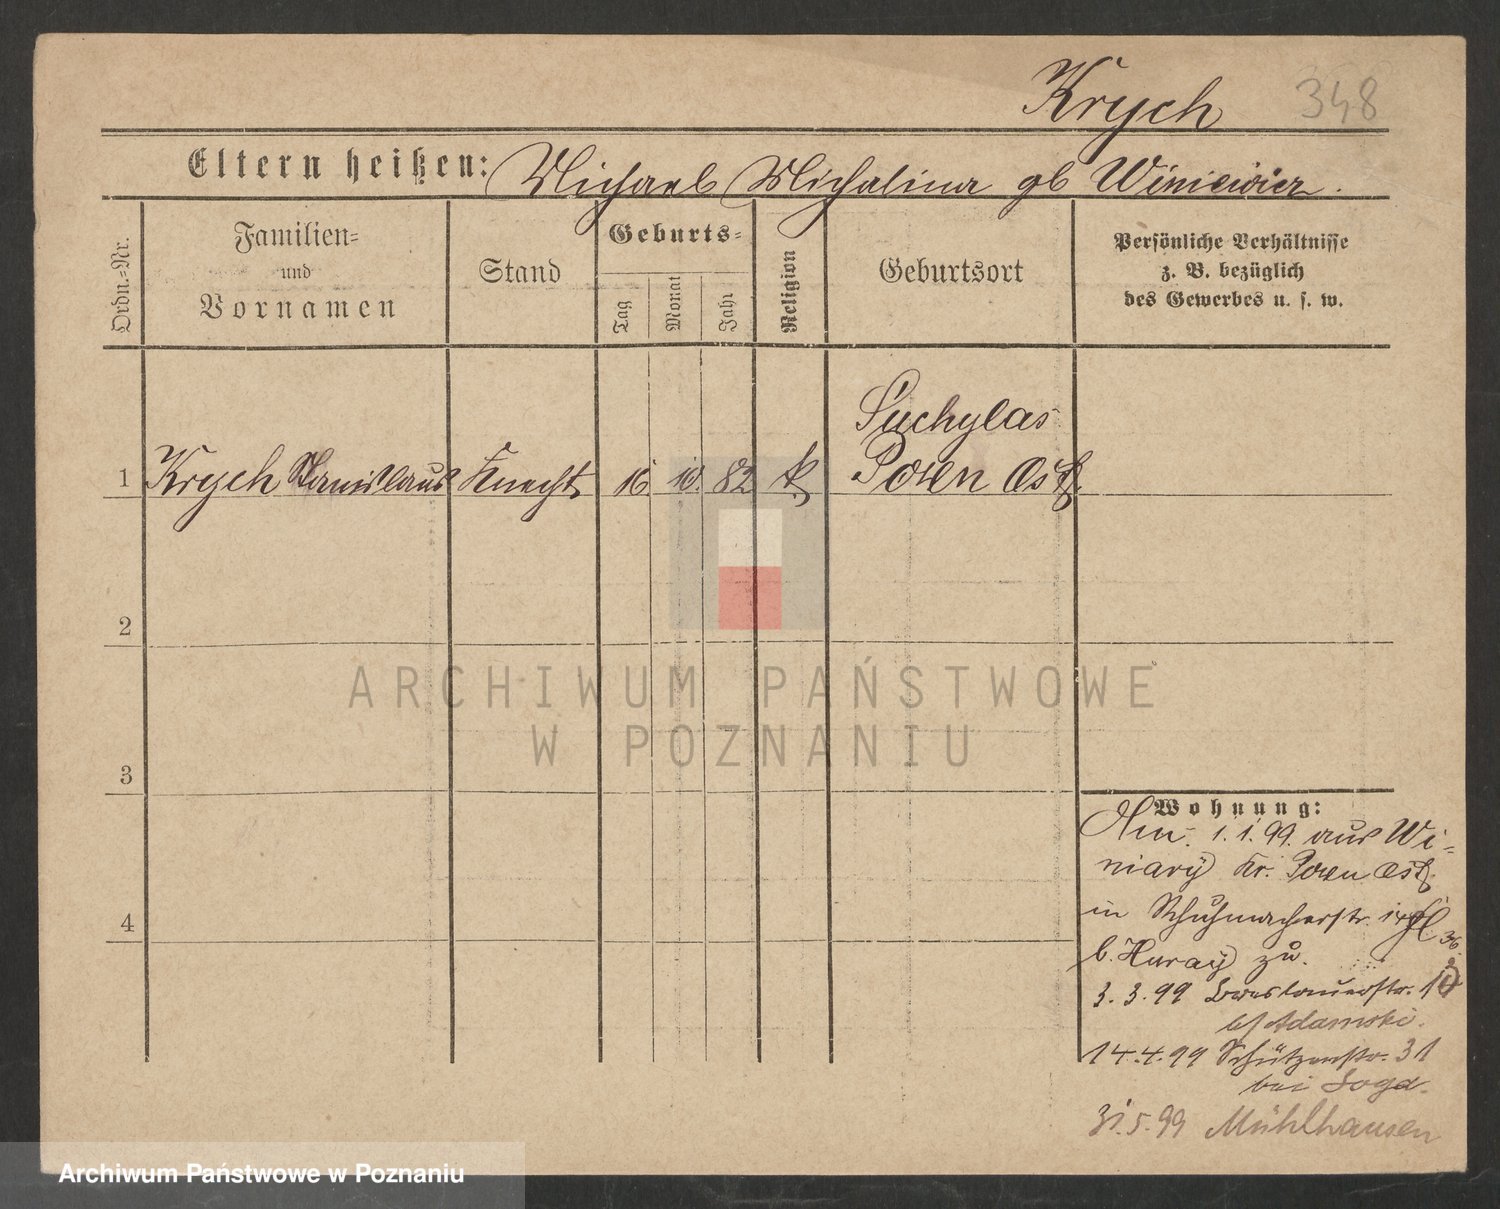 Krych 348
Eltern heißen: Michael Michalina gb Winiewicz.
Ordn.=Nr.
Familien=
und
Vornamen
Stand
Geburts=
Tag
Monat
Jahr
Religion
Geburtsort
Persönliche Verhältnisse
z. B. bezüglich
des Gewerbes u. s. w.
Suchylas
1 Krych Stanislaus Knecht 16. 10. 82 k. Posen Ost.
2
ARCHIWUM PAŃSTWOWE
W POZNANIU
3
Wohnung:
1.1.99. aus Wi=
4
niary Kr. Posen Ost.
in Schuhmacherstr.
b. zu.
3.3.99 Breslauerstr.
b/ Adamski.
14.4.99 Schützenstr. 31
bei
31.5.99 Mühlhausen
Archiwum Państwowe w Poznaniu